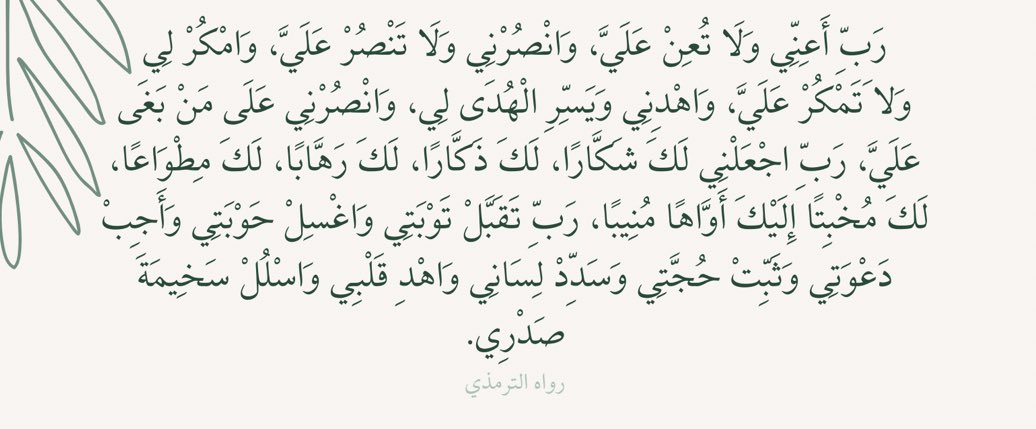 رَبِّ أَعِنِّي وَلَا تُعِنْ عَلَيَّ، وَانْصُرْنِي وَلَا تَنْصُرْ عَلَيَّ، وَامْكُرْ لِي
وَلاَ تَمْكُرْ عَلَيَّ، وَاهْدِنِي وَيَسِّرِ الْهُدَى لِي، وَانْصُرْنِي عَلَى مَنْ بَغَى
عَلَيَّ، رَبِّ اجْعَلْنِي لَكَ شَكَّارًا، لَكَ ذَكَّارًا، لَكَ رَهَّابًا، لَكَ مِطْوَاعًا،
لَكَ مُخْبِتًا إِلَيْكَ أَوَّاهًا مُنِيبًا، رَبِّ تَقَبَّلْ تَوْبَتِي وَاغْسِلْ حَوْبَتِي وَأَجِبْ
دَعْوَتِي وَثَبِّتْ حُجَّتِي وَسَدِّدْ لِسَانِي وَاهْدِ قَلْبِي وَاسْلُلْ سَخِيمَةَ
صَدْرِي.
رواه الترمذي